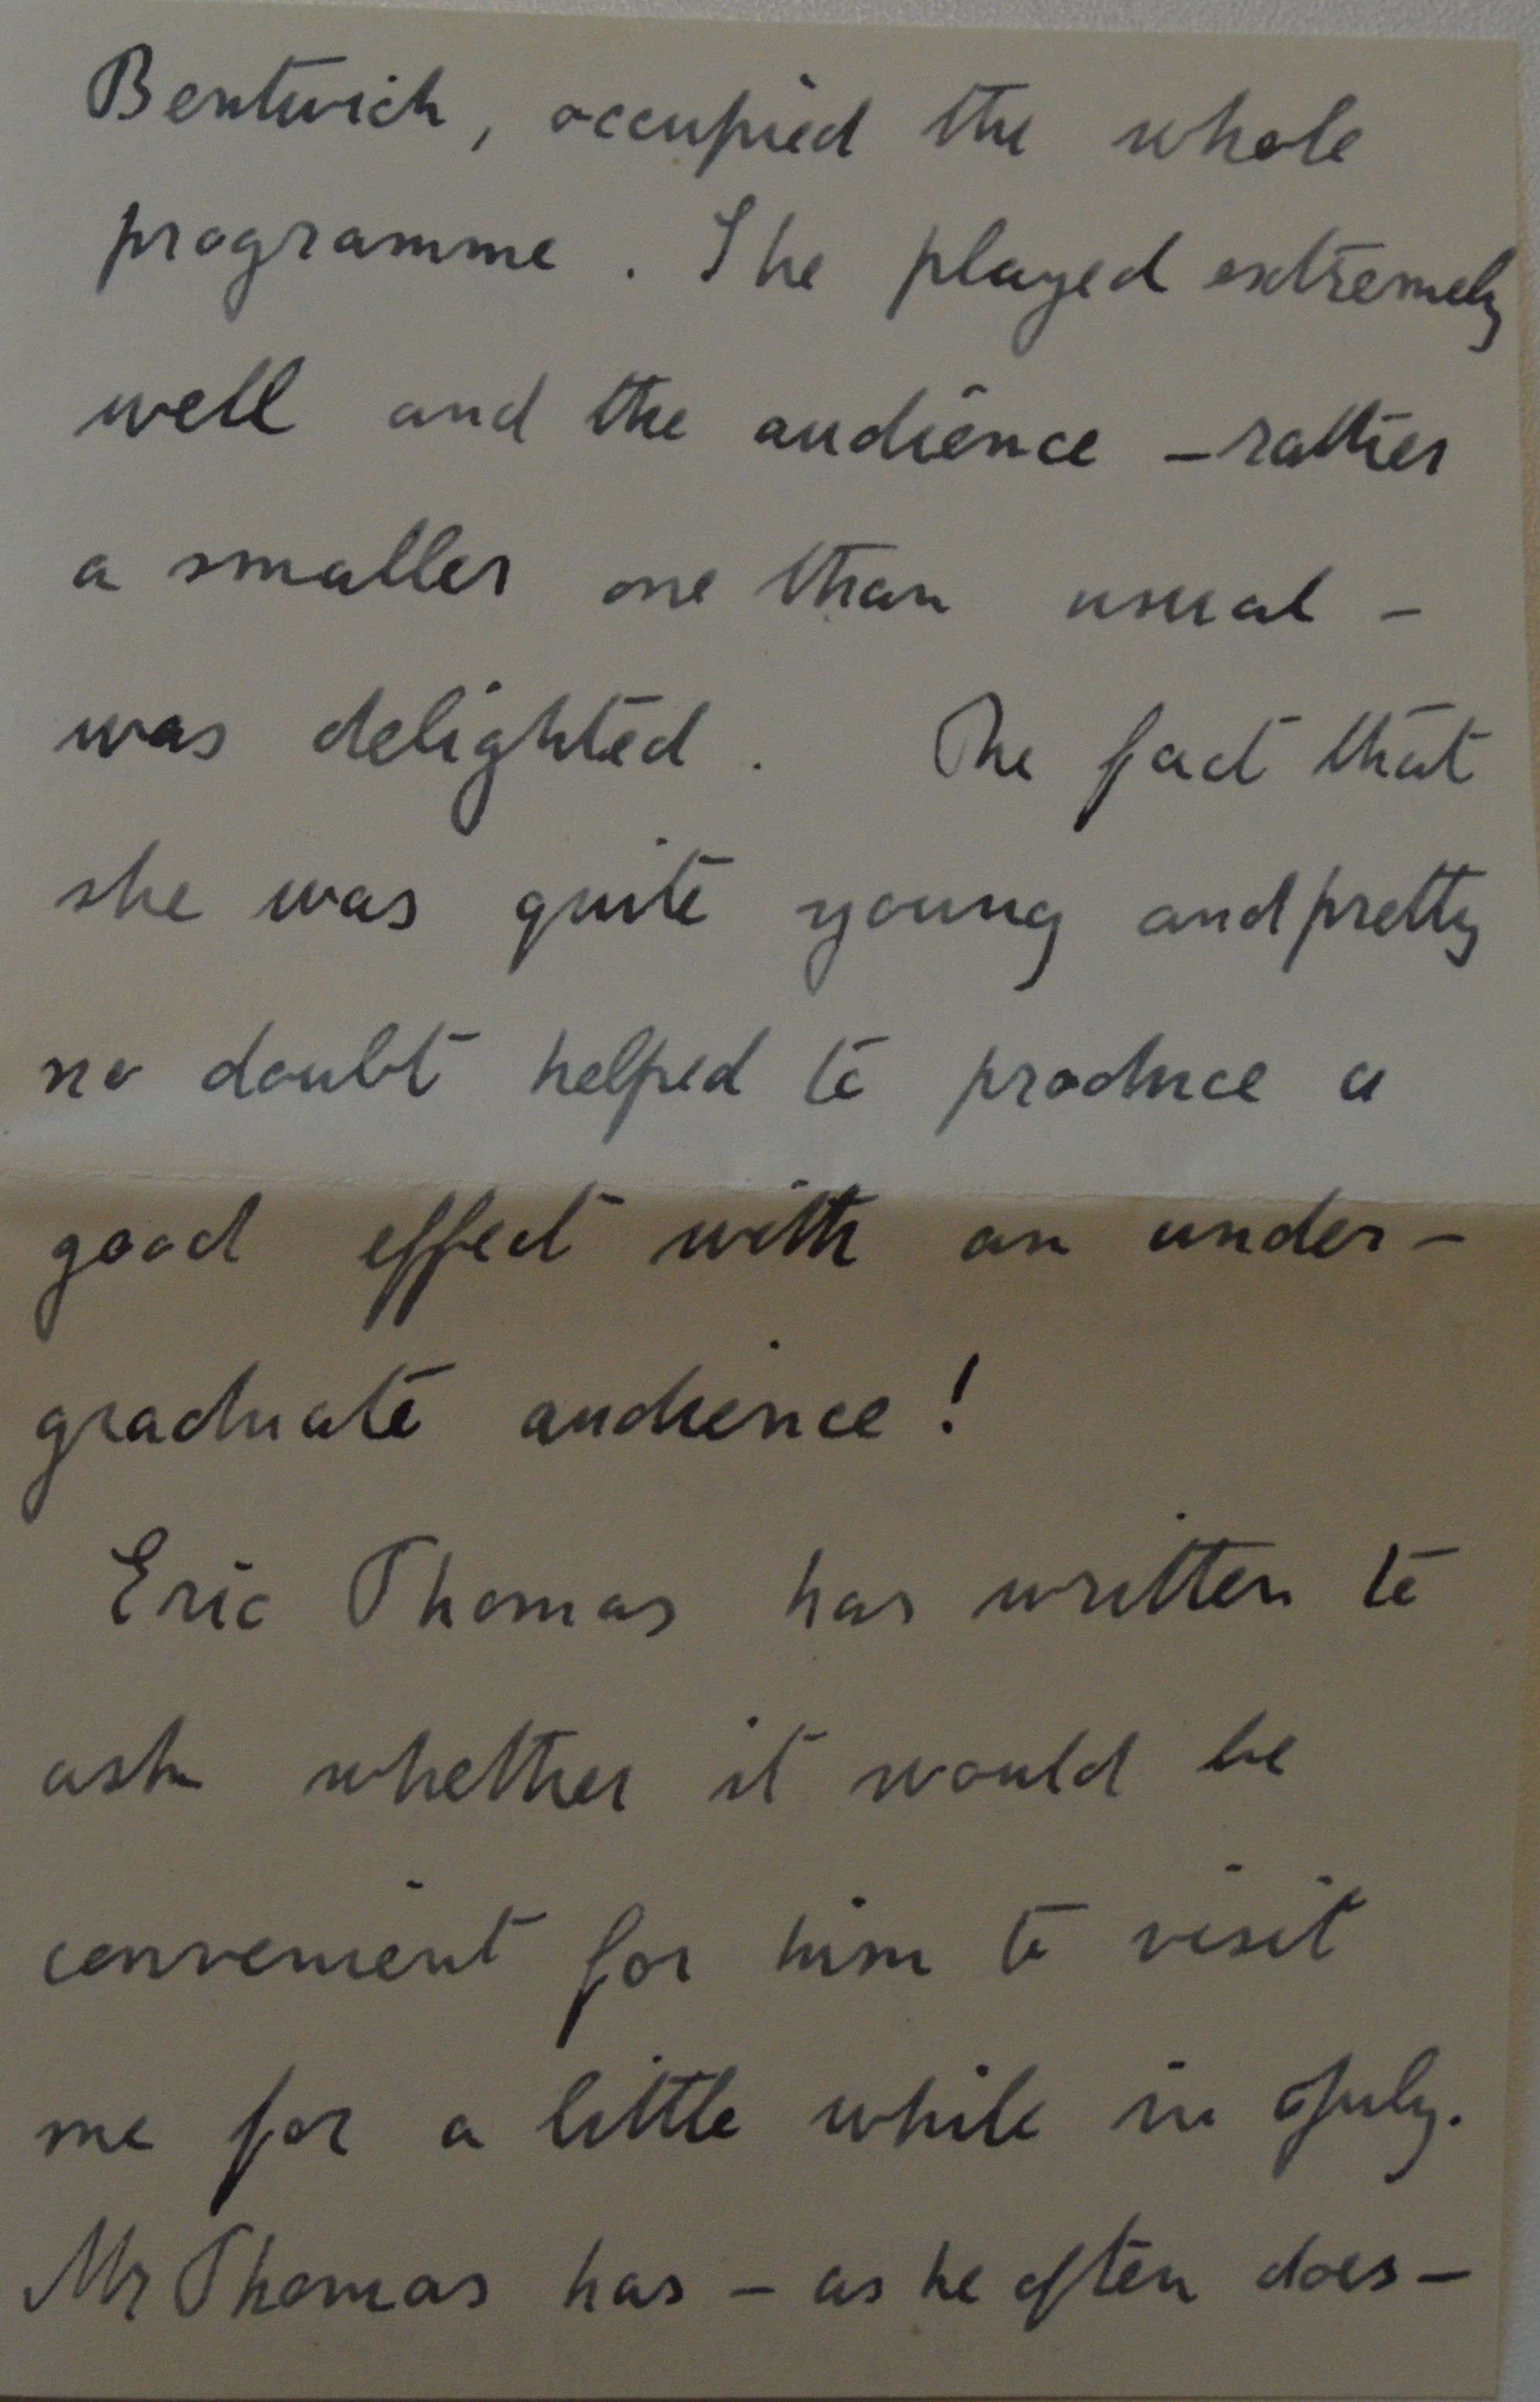 Bentwich, occupied the whole
programme. She played extremely
well and the audience – rather
a smaller one than usual –
was delighted. The fact that
she was quite young and pretty
no doubt helped to produce a
good effect with an under-
graduate audience!
Eric Thomas has written to
ask whether it would be
convenient for him to visit
me for a little while in July.
Mr Thomas has – as he often does –